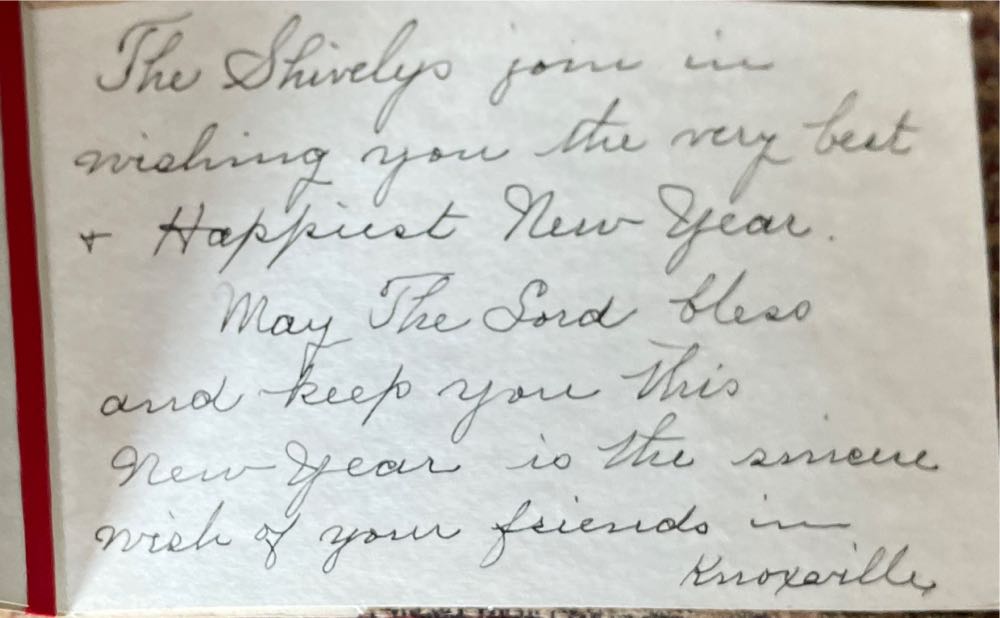 The Shivelys join in
wishing you the very best
+ Happiest New Year.
May The Lord bless
and keep you this
New Year is the sincere
wish of your friends in
Knoxville